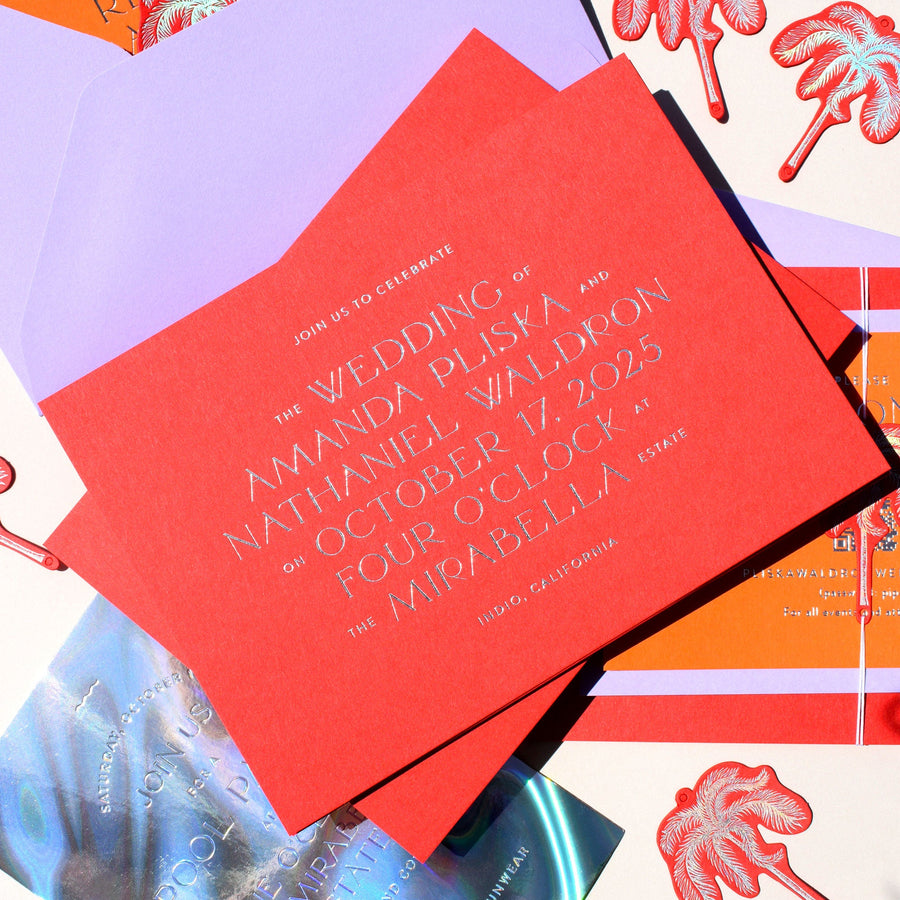 JOIN US TO CELEBRATE
THE WEDDING OF
AMANDA PLISKA AND
NATHANIEL WALDRON
ON OCTOBER 17, 2025
FOUR O'CLOCK AT
THE MIRABELLA ESTATE
INDIO, CALIFORNIA
PLEASE
PLISKAWALDRO WE
For all events
SATURDAY, OCTOBER
JOIN US
FOR A
POOL